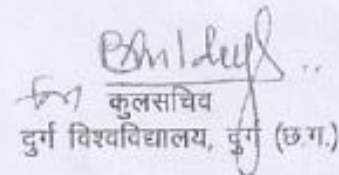 for कुलसचिव
दुर्ग विश्वविद्यालय, दुर्ग (छ.ग.)